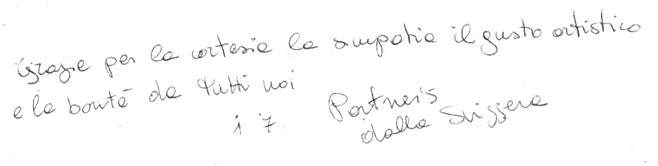 Grazie per la cortesia la simpatia il gusto artistico
e la bontà da tutti noi
i 7 Partners
dalla Svizzera